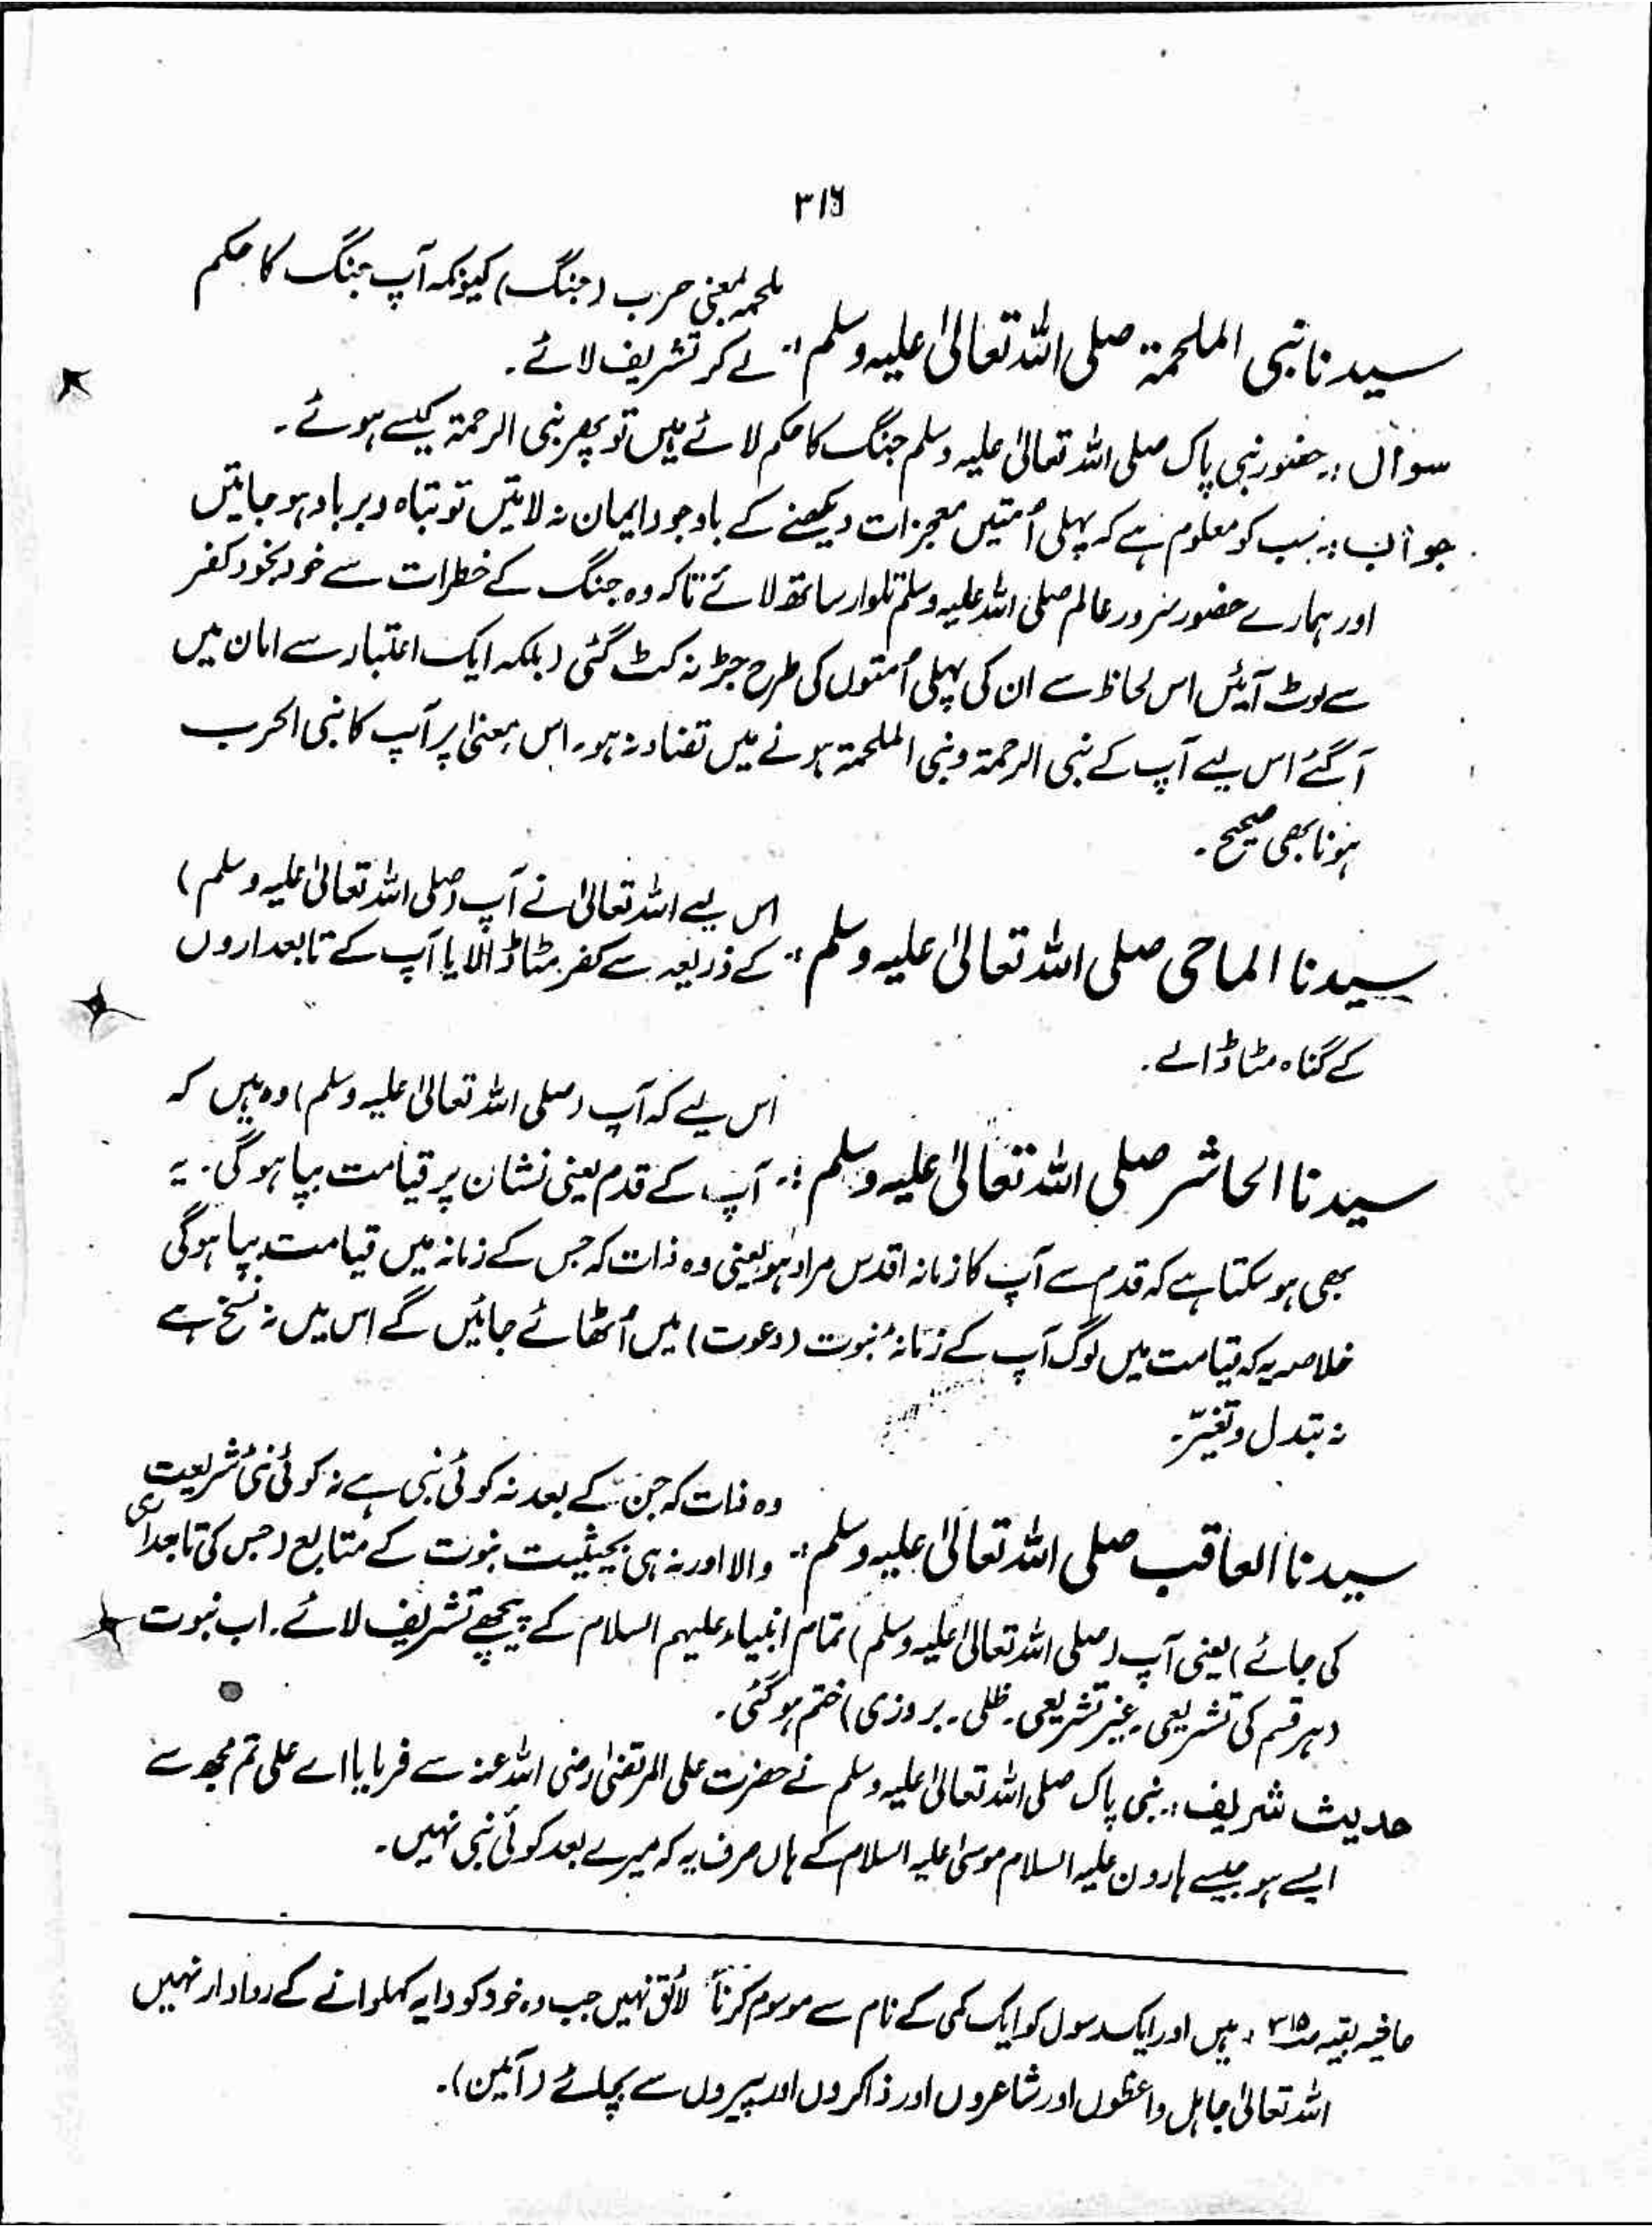 ۳۱۶
ملحمہ بمعنی حرب (جنگ) کیونکہ آپ جنگ کا حکم
سیدنا نبی الملحمۃ صلی اللہ تعالیٰ علیہ وسلم :۔ لے کر تشریف لائے۔
سوال :۔ حضور نبی پاک صلی اللہ تعالیٰ علیہ وسلم جنگ کا حکم لائے ہیں تو پھر نبی الرحمۃ کیسے ہوئے۔
جواب :۔ سب کو معلوم ہے کہ پہلی اُمتیں معجزات دیکھنے کے باوجود ایمان نہ لائیں تو تباہ و برباد ہو جائیں
اور ہمارے حضور سرور عالم صلی اللہ علیہ وسلم تلوار ساتھ لائے تاکہ وہ جنگ کے خطرات سے خود بخود کفر
سے لوٹ آئیں اس لحاظ سے ان کی پہلی اُمتوں کی طرح جڑ نہ کٹ گئی (بلکہ ایک اعتبار سے امان میں
آگئے اس لیے آپ کے نبی الرحمۃ و نبی الملحمۃ ہونے میں تضاد نہ ہو۔ اس معنیٰ پر آپ کا نبی الحرب
ہونا بھی صحیح۔
اس لیے اللہ تعالیٰ نے آپ (صلی اللہ تعالیٰ علیہ وسلم)
سیدنا الماحی صلی اللہ تعالیٰ علیہ وسلم :۔ کے ذریعہ سے کفر مٹا ڈالا یا آپ کے تابعداروں
کے گناہ مٹا ڈالے۔
اس لیے کہ آپ (صلی اللہ تعالیٰ علیہ وسلم) وہ ہیں کہ
سیدنا الحاشر صلی اللہ تعالیٰ علیہ وسلم :۔ آپ کے قدم یعنی نشان پر قیامت بپا ہوگی۔ یہ
بھی ہو سکتا ہے کہ قدم سے آپ کا زمانہ اقدس مراد ہو یعنی وہ ذات کہ جس کے زمانہ میں قیامت بپا ہوگی
خلاصہ یہ کہ قیامت میں لوگ آپ کے زمانۂ نبوت (دعوت) میں اُٹھائے جائیں گے اس میں نہ نسخ ہے
نہ تبدل و تغیّر۔
وہ ذات کہ جن کے بعد نہ کوئی نبی ہے نہ کوئی نئی شریعت
سیدنا العاقب صلی اللہ تعالیٰ علیہ وسلم :۔ والا اور نہ ہی بحیثیت نبوت کے متابع (جس کی تابعداری
کی جائے) یعنی آپ (صلی اللہ تعالیٰ علیہ وسلم) تمام انبیاء علیہم السلام کے پیچھے تشریف لائے۔ اب نبوت
(ہر قسم کی تشریعی۔ غیر تشریعی۔ ظلی۔ بروزی) ختم ہو گئی۔
حدیث شریف :۔ نبی پاک صلی اللہ تعالیٰ علیہ وسلم نے حضرت علی المرتضیٰ رضی اللہ عنہ سے فرمایا اے علی تم مجھ سے
ایسے ہو جیسے ہارون علیہ السلام موسیٰ علیہ السلام کے ہاں صرف یہ کہ میرے بعد کوئی نبی نہیں۔
حاشیہ بقیہ ص ۳۱۵ ، ہیں اور ایک رسول کو ایک کمی کے نام سے موسوم کرنا لائق نہیں جب وہ خود کو دایہ کہلوانے کے روادار نہیں
اللہ تعالیٰ جاہل واعظوں اور شاعروں اور ذاکروں اور پیروں سے بچائے (آمین)۔